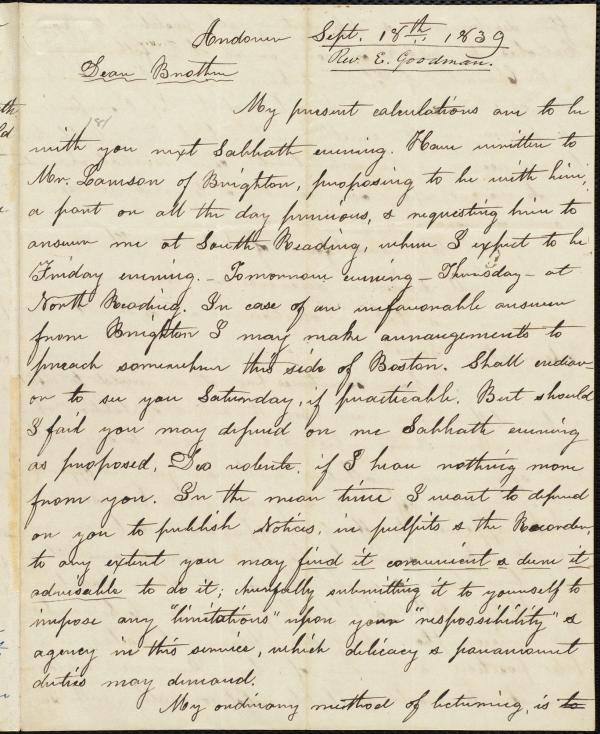 Andover Sept. 18th, 1839
Rev. E. Goodman.
Dear Brother
My present calculations are to be
with you next Sabbath evening. Have written to
Mr. Lamson of Brighton, proposing to be with him,
a part or all the day previous, & requesting him to
answer me at South Reading, where I expect to be
Friday evening. - Tomorrow evening - Thursday - at
North Reading. In case of an unfavorable answer
from Brighton I may make arrangements to
preach somewhere this side of Boston. Shall endeav-
or to see you Saturday, if practicable. But should
I fail you may depend on me Sabbath evening
as proposed, Deo volente, if I hear nothing more
from you. In the mean time I want to depend
on you to publish Notices, in pulpits & the Recorder,
to any extent you may find it convenient & deem it
advisable to do it; cheerfully submitting it to yourself to
impose any "limitations" upon your "respossibility" &
agency in this service, which delicacy & paramount
duties may demand.
My ordinary method of lecturing, is to